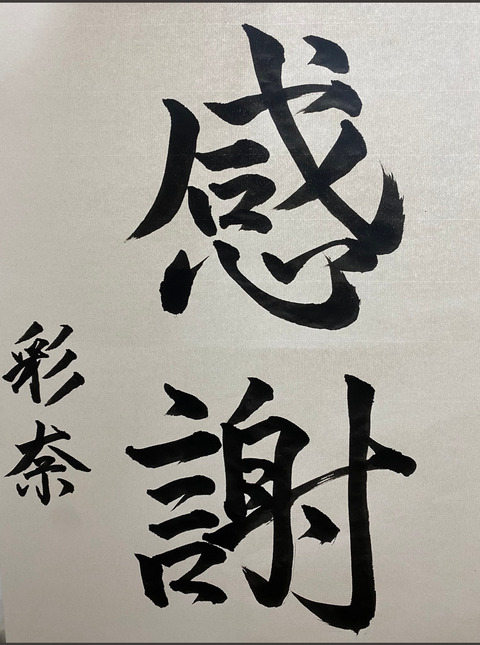 感謝
彩奈